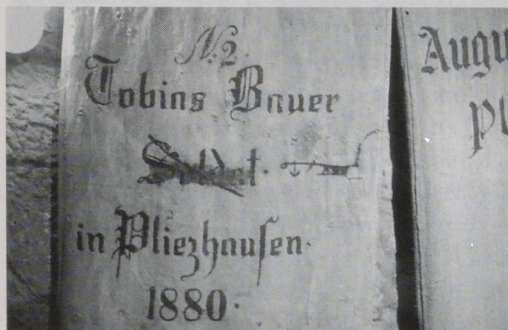 No 2.
Tobias Bauer
Soldat.
in Pliezhausen.
1880.
Augu
Pl